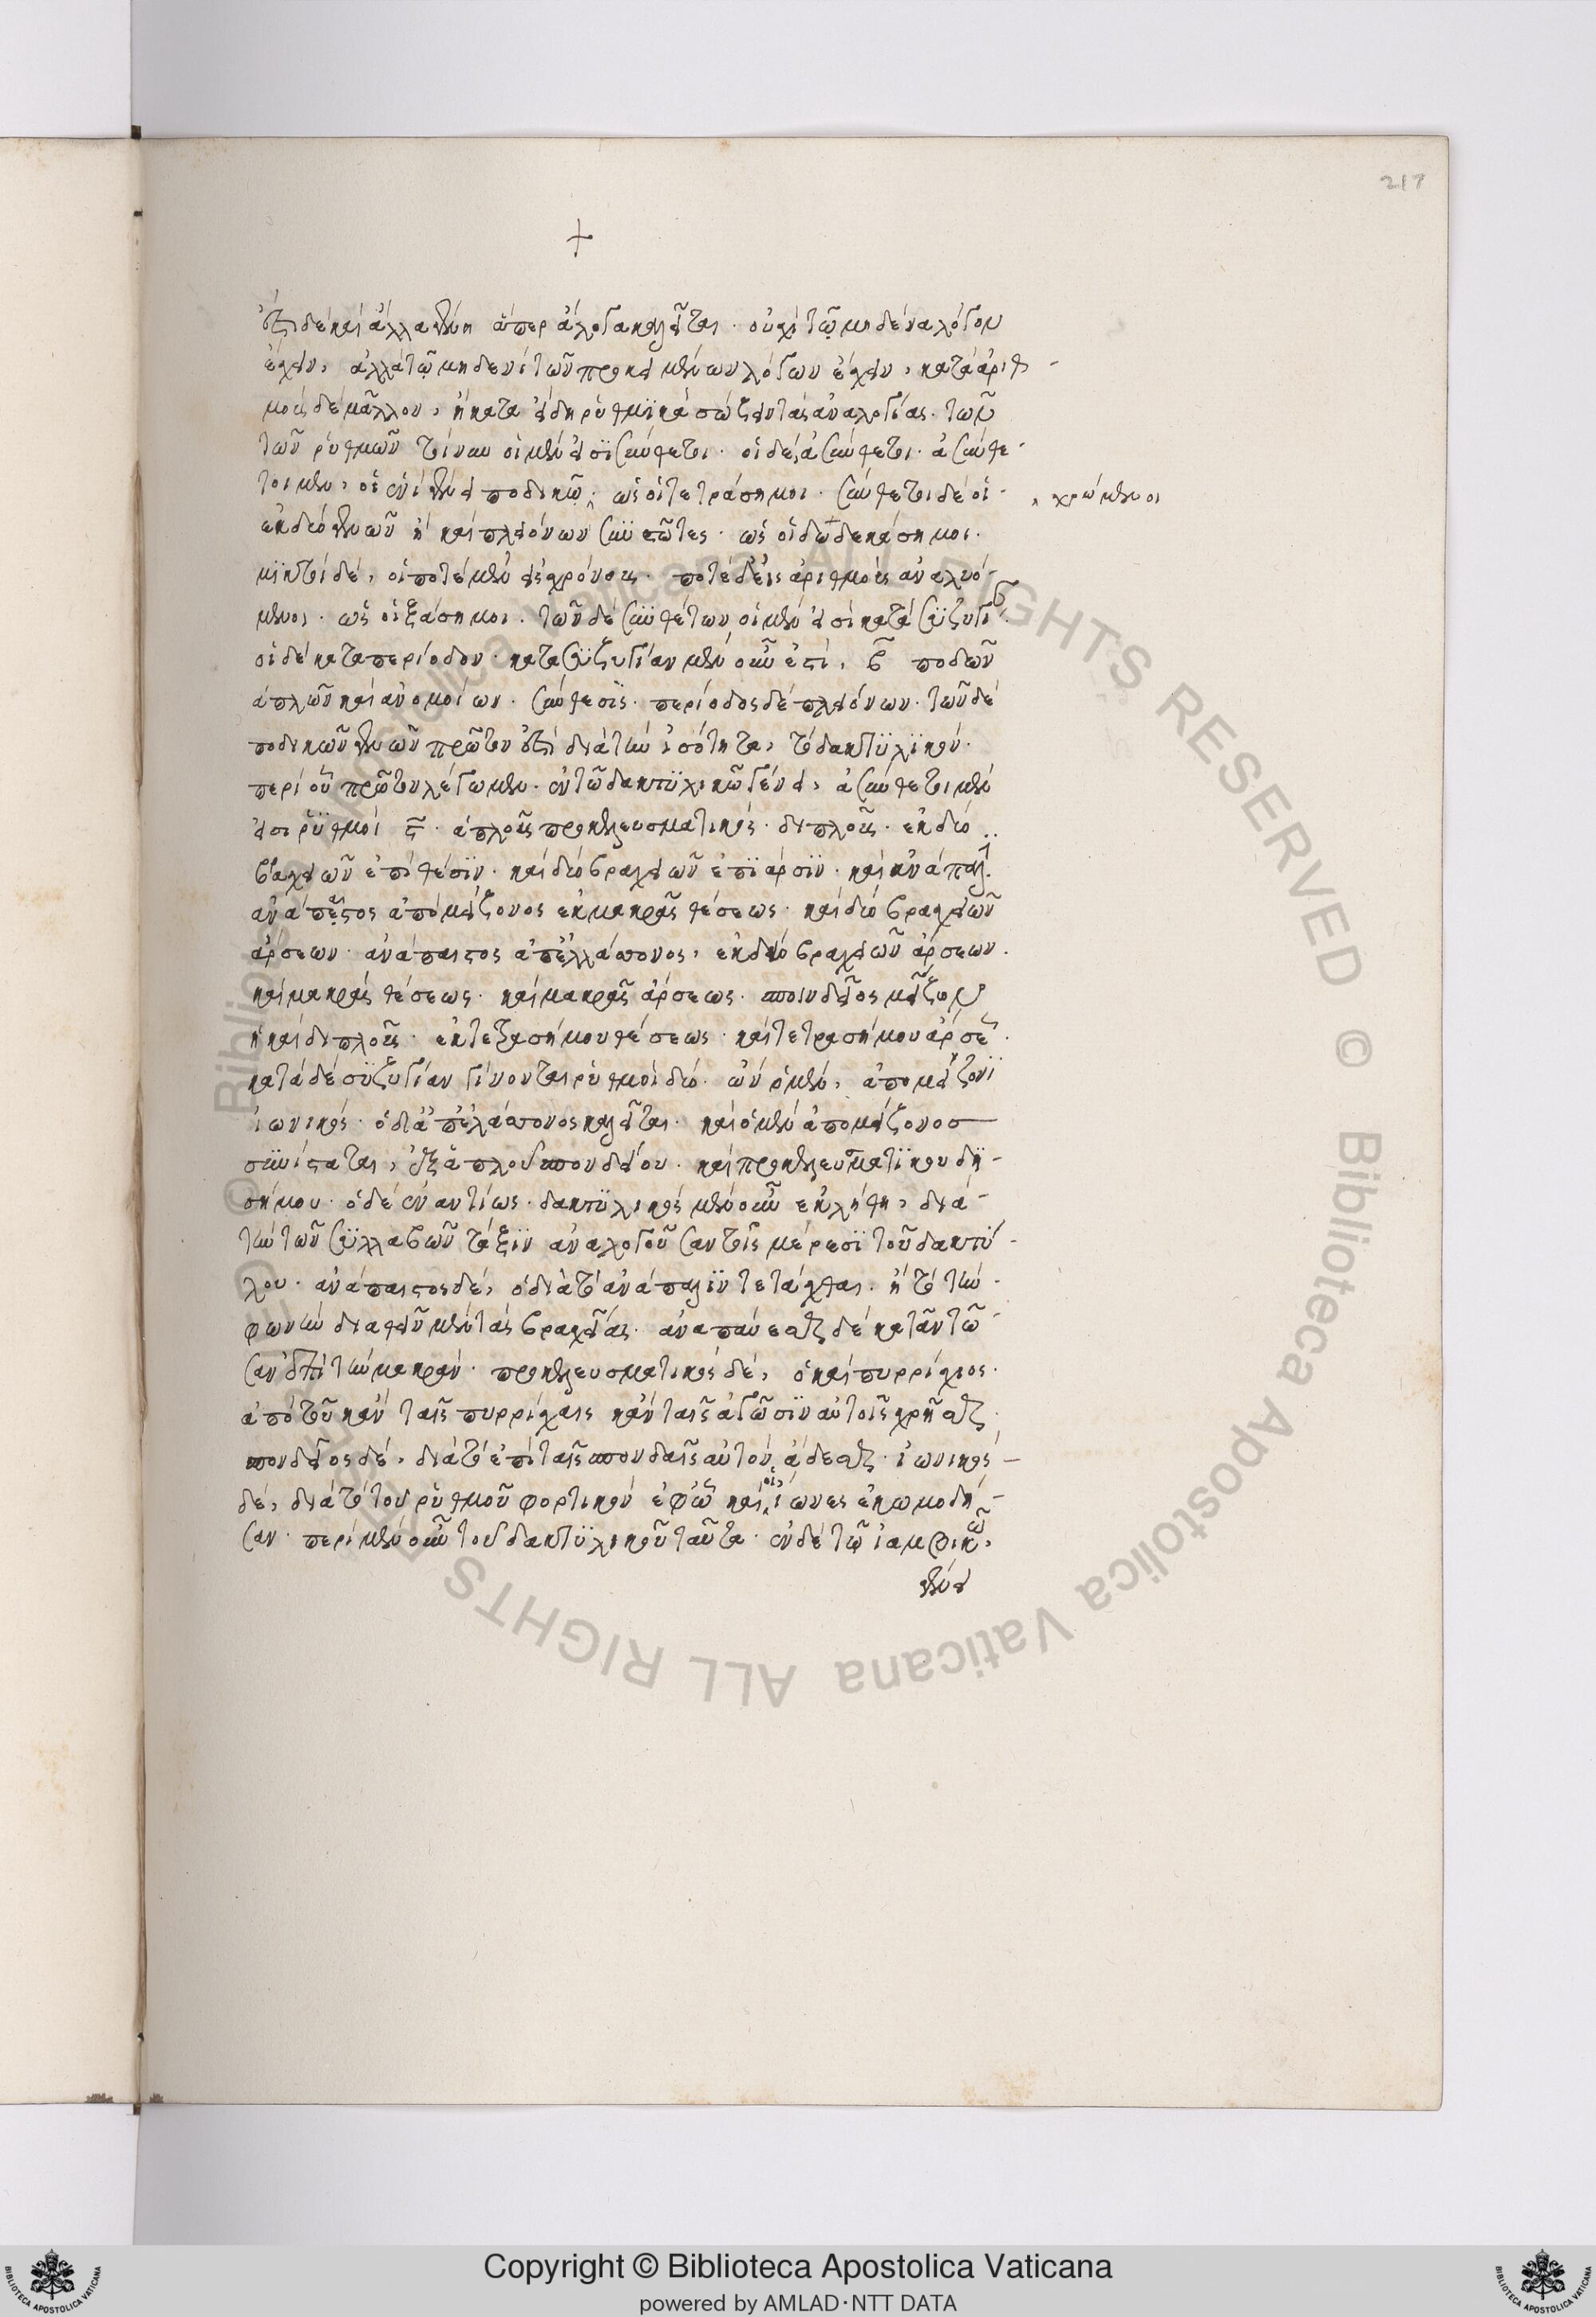 217
ἔστι δὲ καὶ ἄλλα γένη ἅπερ ἄλογα καλεῖται· οὐχὶ τῷ μηδένα λόγον
ἔχειν, ἀλλὰ τῷ μηδενὶ τῶν προκειμένων λόγων ἔχειν, κατὰ ἀριθ-
μοὺς δὲ μᾶλλον, ἢ κατὰ εἴδη ῥυθμικὰ σώζειν τὰς ἀναλογίας. τῶν
τῶν ῥυθμῶν τοίνυν οἱ μέν εἰσι σύνθετοι· οἱ δὲ, ἀσύνθετοι. ἀσύνθε-
τοι μὲν, οἱ ἑνὶ γένει ποδικῷ· ὡς οἱ τετράσημοι. σύνθετοι δὲ οἱ
χρώμενοι
ἐκ δύο γενῶν ἢ καὶ πλειόνων συνεστῶτες· ὡς οἱ δωδεκάσημοι.
μικτοὶ δὲ, οἱ ποτὲ μὲν εἰς χρόνους· ποτὲ δὲ εἰς ἀριθμοὺς ἀναλυό-
μενοι· ὡς οἱ ἑξάσημοι. τῶν δὲ συνθέτων οἱ μέν εἰσι κατὰ συζυγί
οἱ δὲ κατὰ περίοδον· κατὰ συζυγίαν μὲν οὖν ἐστὶ, β ποδῶν
ἁπλῶν καὶ ἀνομοίων· σύνθεσις· περίοδος δὲ πλειόνων. τῶν δὲ
ποδικῶν γενῶν πρῶτον ἐστὶ διὰ τὴν ἰσότητα, τὸ δακτυλικόν.
περὶ οὗ πρῶτον λέγωμεν· ἐν τῷ δακτυλικῷ γένει, ἀσύνθετοι μέν
εἰσι ῥυθμοὶ ϛ· ἁπλοῦς προκελευσματικός· διπλοῦς· ἐκ δύο
βραχειῶν ἐπὶ θέσιν· καὶ δύο βραχειῶν ἐπὶ ἄρσιν· καὶ ἀνάπαλι
ἀνάπεστος ἀπὸ μείζονος ἐκ μακρᾶς θέσεως· καὶ δύο βραχειῶν
ἄρσεων· ἀνάπαιστος ἀπ' ἐλλάττονος, ἐκ δύο βραχειῶν ἄρσεων.
καὶ μακρᾶς θέσεως· καὶ μακρᾶς ἄρσεως· σποινδεῖος μείζων
ἢ καὶ διπλοῦς· ἐκ τετρασήμου θέσεως· καὶ τετρασήμου ἄρσε
κατὰ δὲ συζυγίαν γίνονται ῥυθμοὶ δύο· ὧν ὁ μὲν, ἀπὸ μείζονος
ἰωνικός· ὁ δὲ ἀπ' ἐλάττονος καλεῖται· καὶ ὁ μὲν ἀπὸ μείζονος
συνίσταται, ἐξ ἁπλοῦ σπονδείου· καὶ προκελευσματικοῦ δι-
σήμου· ὁ δὲ ἐναντίως· δακτυλικὸς μὲν οὖν ἐκλήθη, διὰ
τὴν τῶν συλλαβῶν τάξιν ἀναλογοῦσαν τοῖς μέρεσι τοῦ δακτύ-
λου· ἀνάπαιστος δὲ, ὁ διὰ τὸ ἀνάπαλιν τετάχθαι· ἢ τὸ τὴν
φωνὴν διαθεῖν μὲν τὰς βραχείας· ἀναπαύεσθαι δὲ καταντῶ
σαν ἐπὶ τὴν μακράν· προκελευσματικὸς δὲ, ὁ καὶ πυρρίχιος·
ἀπὸ τοῦ κἀν ταῖς πυρρίχαις κἀν τοῖς ἀγῶσιν αὐτοῖς χρῆσθαι·
σπονδεῖος δὲ, διὰ τὸ ἐπὶ ταῖς σπονδαῖς αὐτὸν ἄδεσθαι· ἰωνικὸς
δὲ, διὰ τὸ τοῦ ῥυθμοῦ φορτικόν ἐφ' ᾧ καὶ οἱ ἴωνες ἐκωμωδή-
σαν· περὶ μὲν οὖν τοῦ δακτυλικοῦ ταῦτα· ἐν δὲ τῷ ἰαμβικῷ,
γένει
Copyright © Biblioteca Apostolica Vaticana
powered by AMLAD·NTT DATA